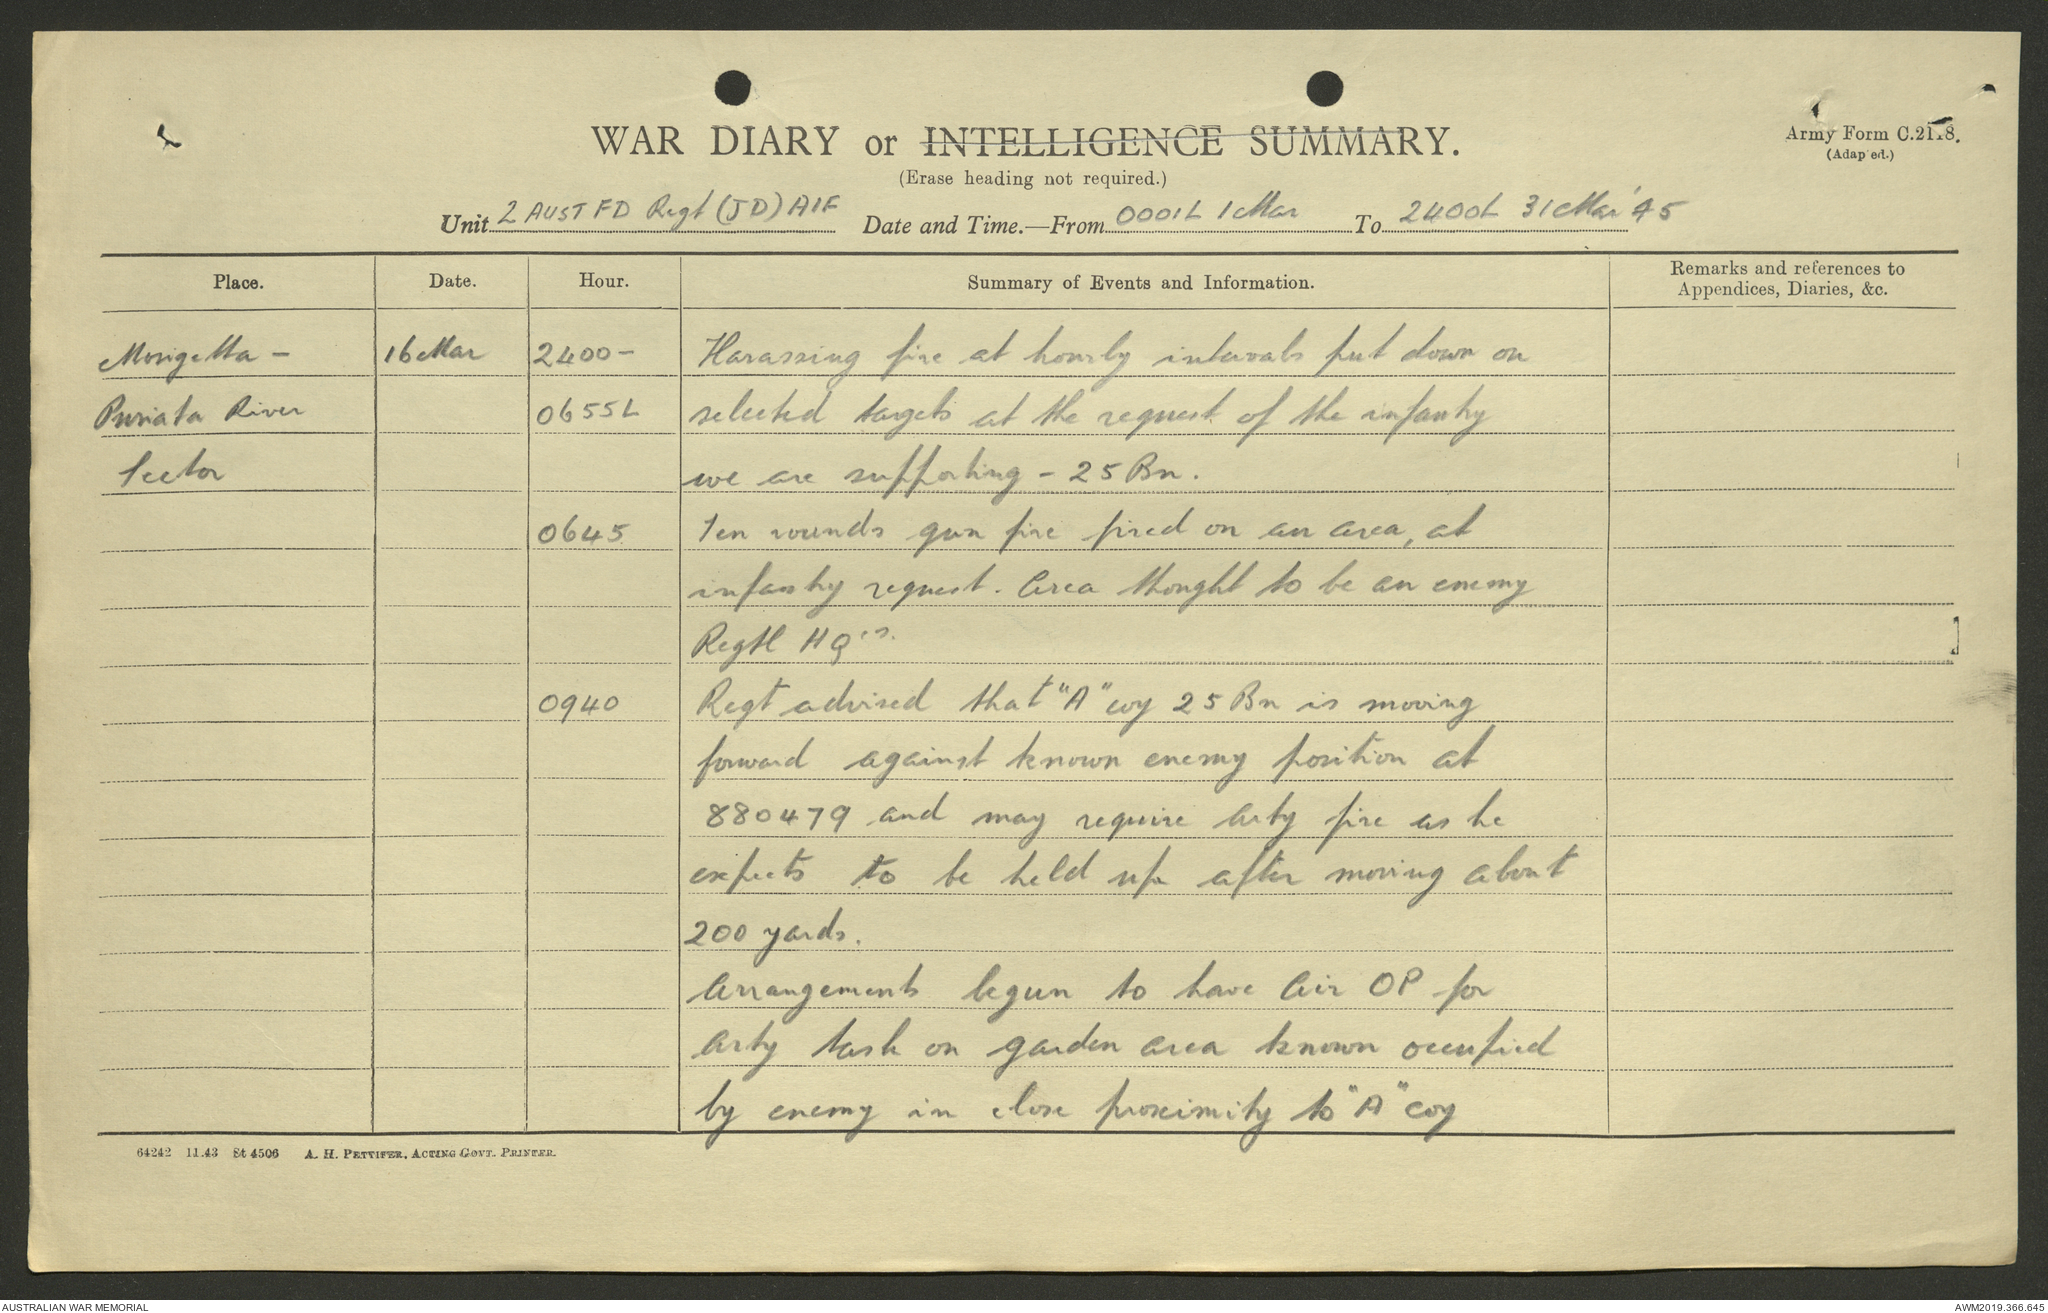 WAR DIARY or INTELLIGENCE SUMMARY.
Army Form C.2118.
(Adapted.)
(Erase heading not required.)
Unit 2 AUST FD Regt (JD) AIF Date and Time.—From 0001L 1 Mar To 2400L 31 Mar '45
Place. Date. Hour. Summary of Events and Information. Remarks and references to
Appendices, Diaries, &c.
Mosigetta - 16 Mar 2400- Harassing fire at hourly intervals put down on
Puriata River 0655L selected targets at the request of the infantry
Sector we are supporting - 25 Bn.
0645 Ten rounds gun fire fired on an area, at
infantry request. Area thought to be an enemy
Regtl HQ's.
0940 Regt advised that "A" coy 25 Bn is moving
forward against known enemy position at
880479 and may require arty fire as he
expects to be held up after moving about
200 yards.
Arrangements begun to have Air OP for
arty task on garden area known occupied
by enemy in close proximity to "A" coy
64242 11.43 St 4506 A. H. PETTIFER, ACTING GOVT. PRINTER.
AUSTRALIAN WAR MEMORIAL
AWM2019.366.645